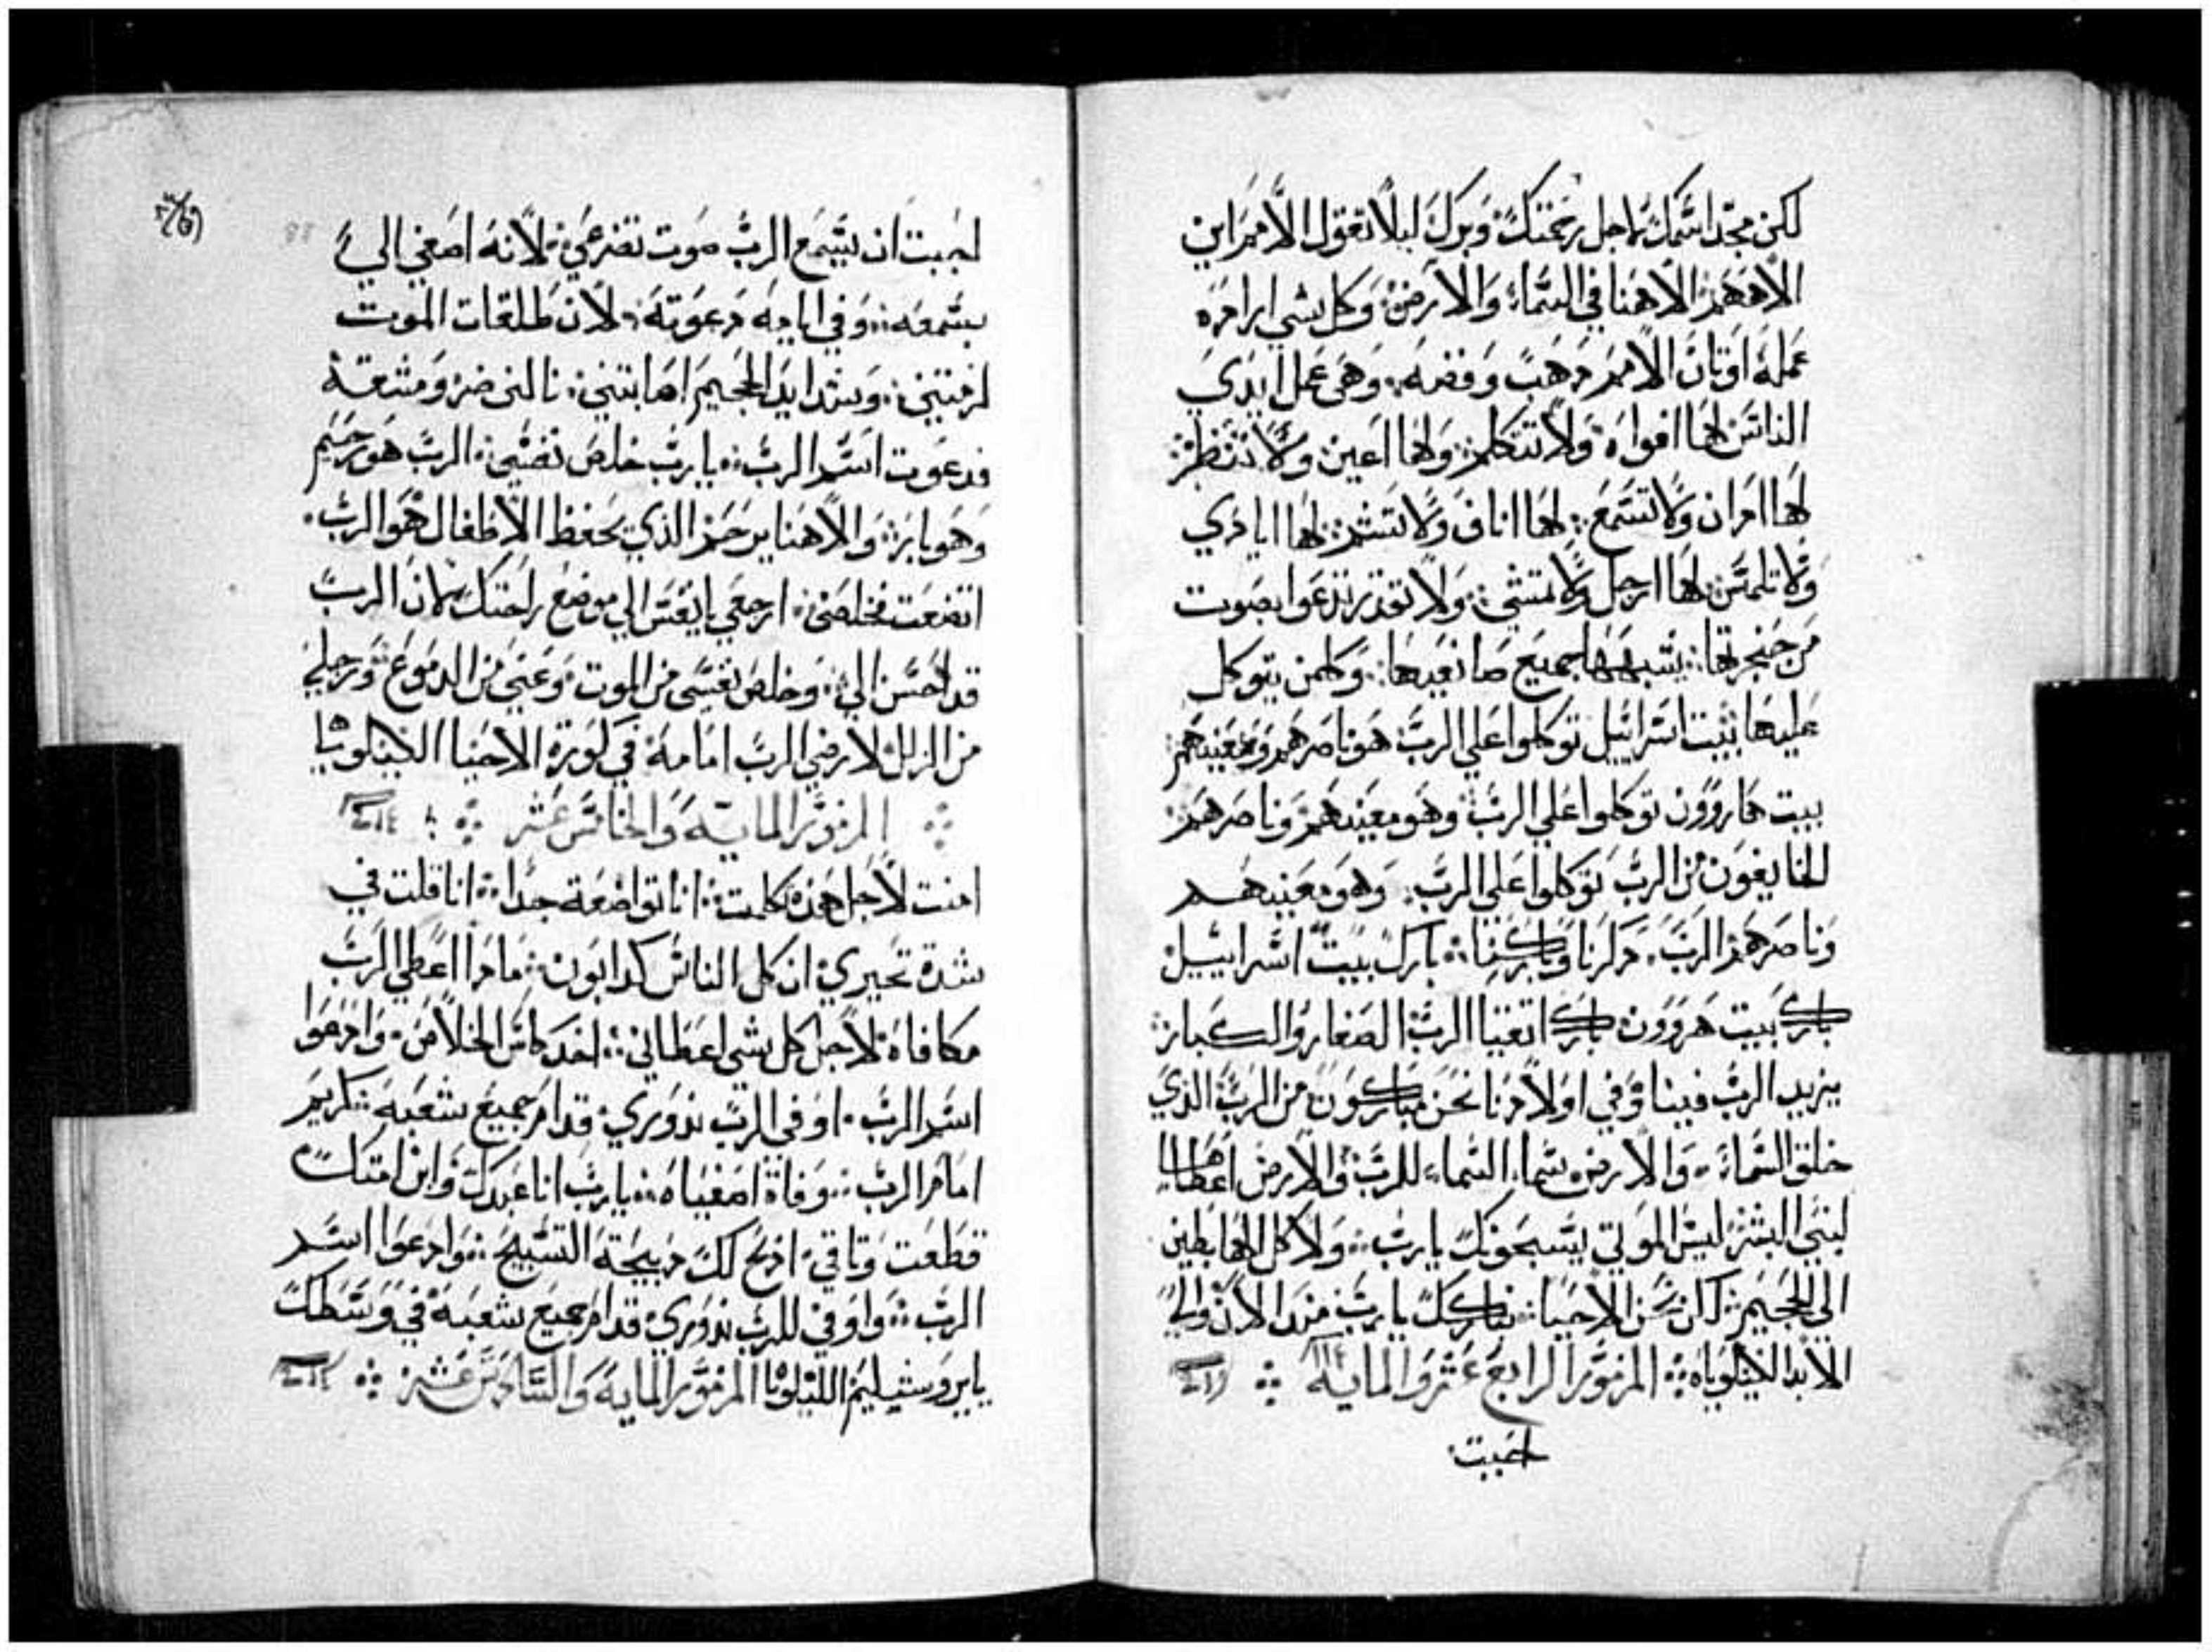 لكن مجد اسمك لاجل رحمتك وبرك ليلا تقول الامم اين
الاههم الاهنا في السماء والارض وكل شي اراده
عمله اوتان الامم دهب وفضه وهي عمل ايدي
الناس لها افواه ولا تتكلم ولها اعين ولا تنظر
لها ادان ولا تسمع لها اناف ولا تشم لها ايادي
ولا تلمس لها ارجل ولا تمشي ولا تقدر تدعوا بصوت
من حنجرتها يشبهها جميع صانعيها وكلمن يتوكل
عليها بيت اسراييل توكلوا علي الرب هو ناصرهم ومعينهم
بيت هاروون توكلوا علي الرب وهو معينهم وناصرهم
الخايفون من الرب توكلوا علي الرب وهو معينهم
وناصرهم الرب دكرنا وباركنا بارك بيت اسراييل
بارك بيت هروون بارك اتقيا الرب الصغار والكبار
يزيد الرب فينا وفي اولادنا نحن مباركون من الرب الذي
خلق السماء والارض سماء السماء للرب والارض اعطاها
لبني البشر ليس الموتي يسبحونك يارب ولا كل الهابطين
الي الجحيم لكن نحن الاحيا نباركك يارب مند الان والي
الابد الليلوياه المزمور الرابع عشر والمايه
احببت
احببت ان يسمع الرب صوت تضرعي لانه اصغي الي
بسمعه وفي ايامه دعوته لان طلقات الموت
لزمتني وشدايد الجحيم اصابتني نالني ضر ومشقة
فدعوت اسم الرب يارب خلص نفسي الرب هو رحيم
وهو بار والاهنا يرحم الذي يحفظ الاطفال هو الرب
اتضعت فخلصني ارجعي يانفس الي موضع راحتك لان الرب
قد احسن الي وخلص نفسي من الموت وعيني من الدموع ورجلي
من الزلل لارضي الرب امامه في كورة الاحيا الليلويا
المزمور المايه والخامس عشر
امنت لاجل هذه كلمت انا تواضعة جدا انا قلت في
شدة تحيري ان كل الناس كدابون مادا اعطي الرب
مكافاه لاجل كل شي اعطاني اخد كاس الخلاص وادعوا
اسم الرب اوفي الرب ندوري قدام جميع شعبه كريم
امام الرب وفاة اصفياه يارب انا عبدك وابن امتك
قطعت وتاقي ادبح لك دبيحة التسبيح وادعوا اسم
الرب واوفي للرب ندوري قدام جميع شعبه في وسطك
يايروشليم الليلويا المزمور المايه والسادس عشر